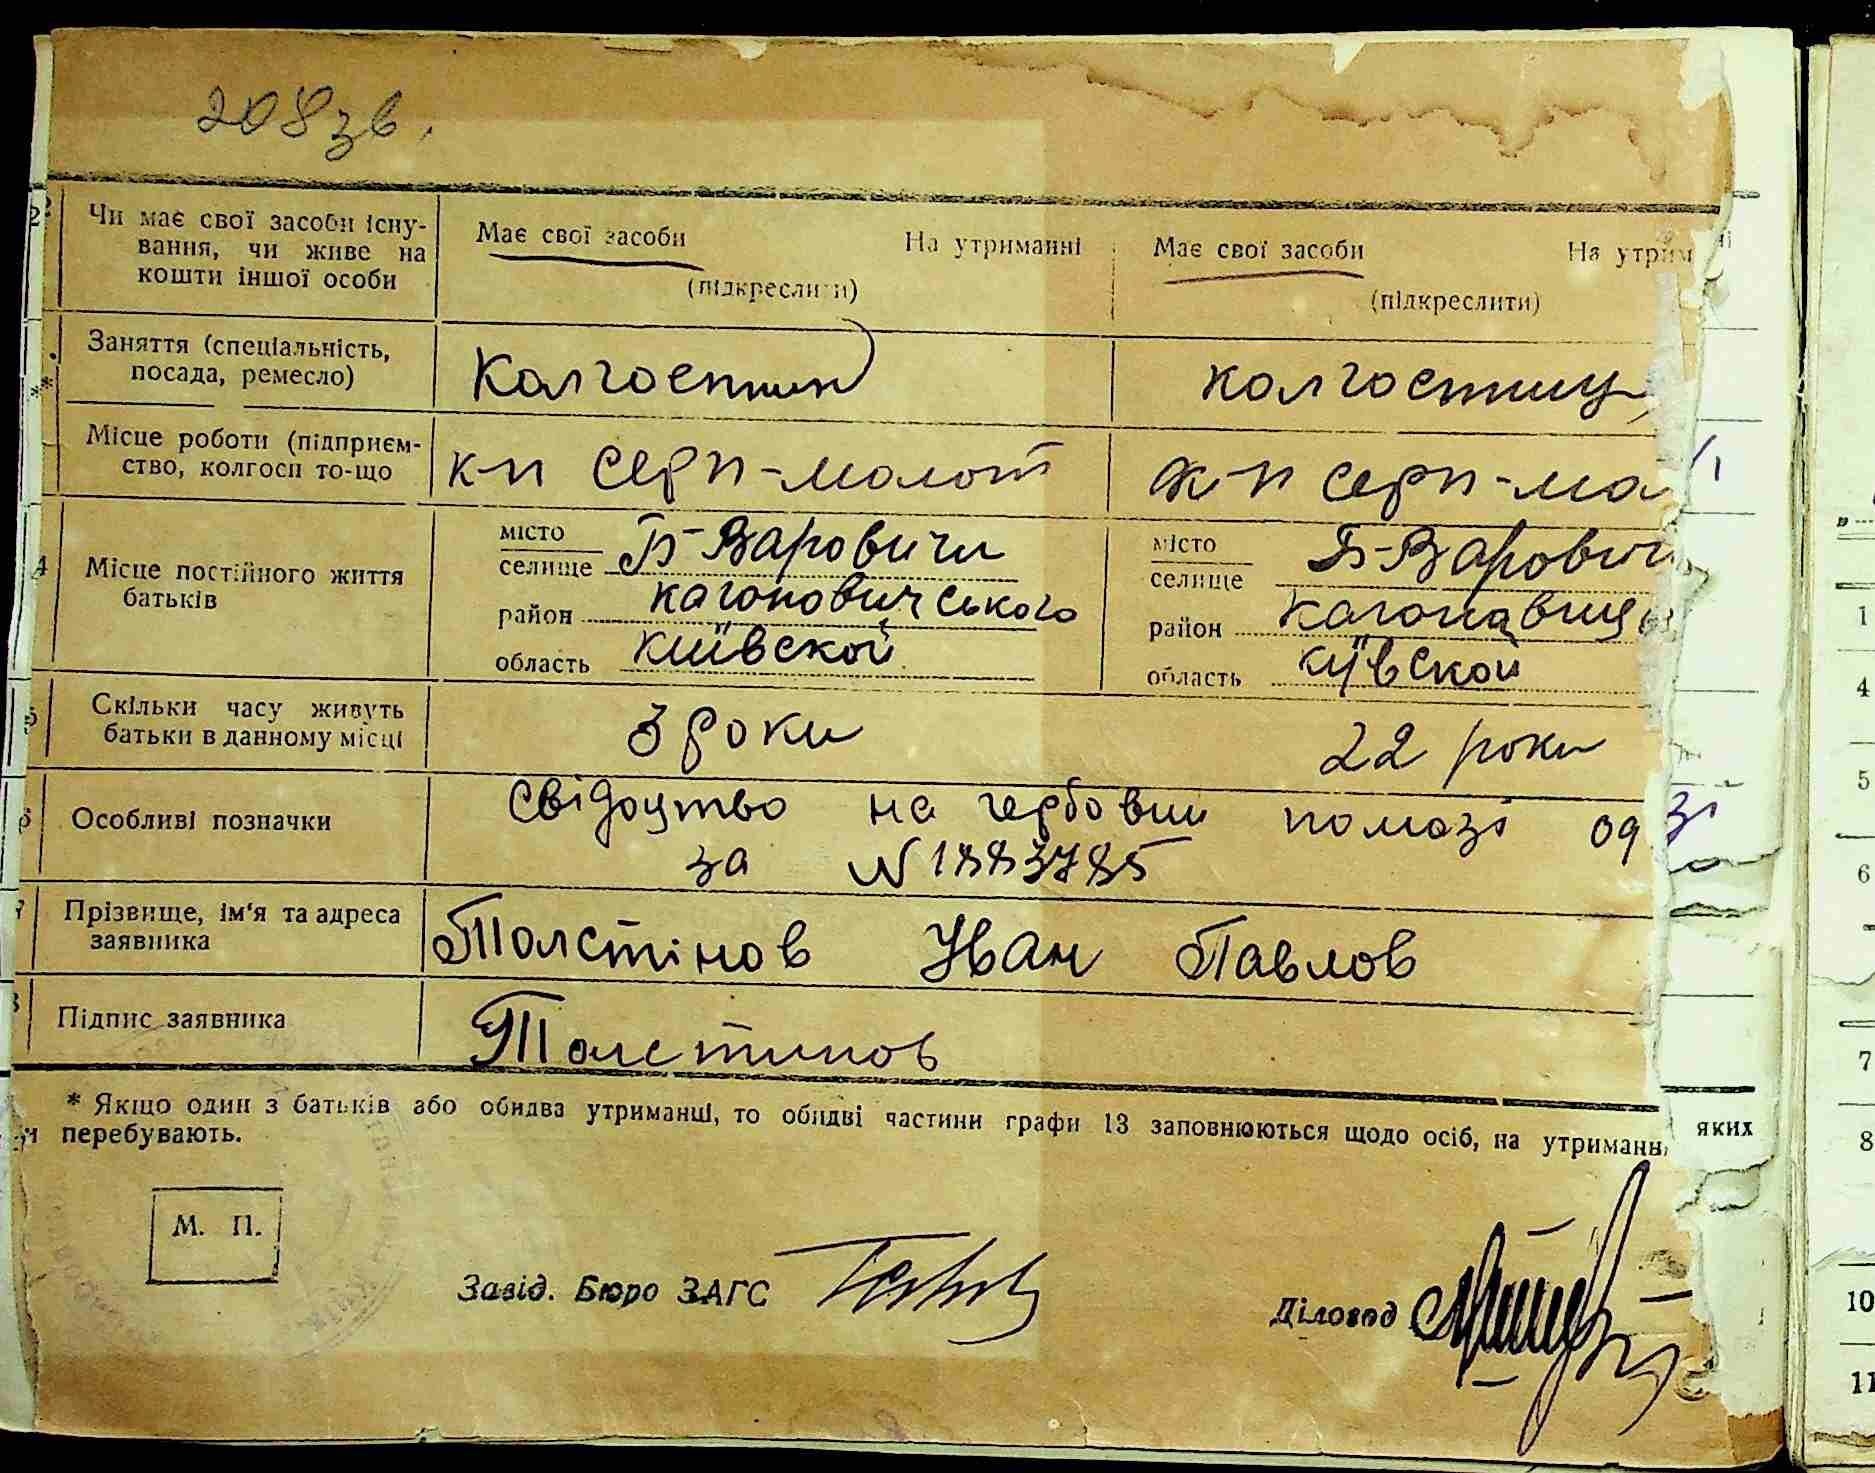 208 зв.
Чи має свої засоби існу-
вання, чи живе на
кошти іншої особи
Має свої засоби На утриманні
(підкреслити)
Має свої засоби На утрим
(підкреслити)
Заняття (спеціальність,
посада, ремесло)
Колгоспник
колгоспниц
Місце роботи (підприєм-
ство, колгосп то-що
к-п серп-молот
к-п серп-мо
4
Місце постійного життя
батьків
місто
селище Б-Варовичи
район кагоновичського
область київской
місто
селище Б-Варович
район
область київской
5
Скільки часу живуть
батьки в данному місці
3 роки
22 роки
6
Особливі позначки
свідоцтво на гербовий
за N 1883785
7
Прізвище, ім'я та адреса
заявника
Толстінов Иван Павлов
8
Підпис заявника
Толстинов
* Якщо один з батьків або обидва утриманці, то обидві частини графи 13 заповнюються щодо осіб, на утриманні яких
перебувають.
М. П.
Завід. Бюро ЗАГС
Діловод
1
4
5
6
7
8
10
11